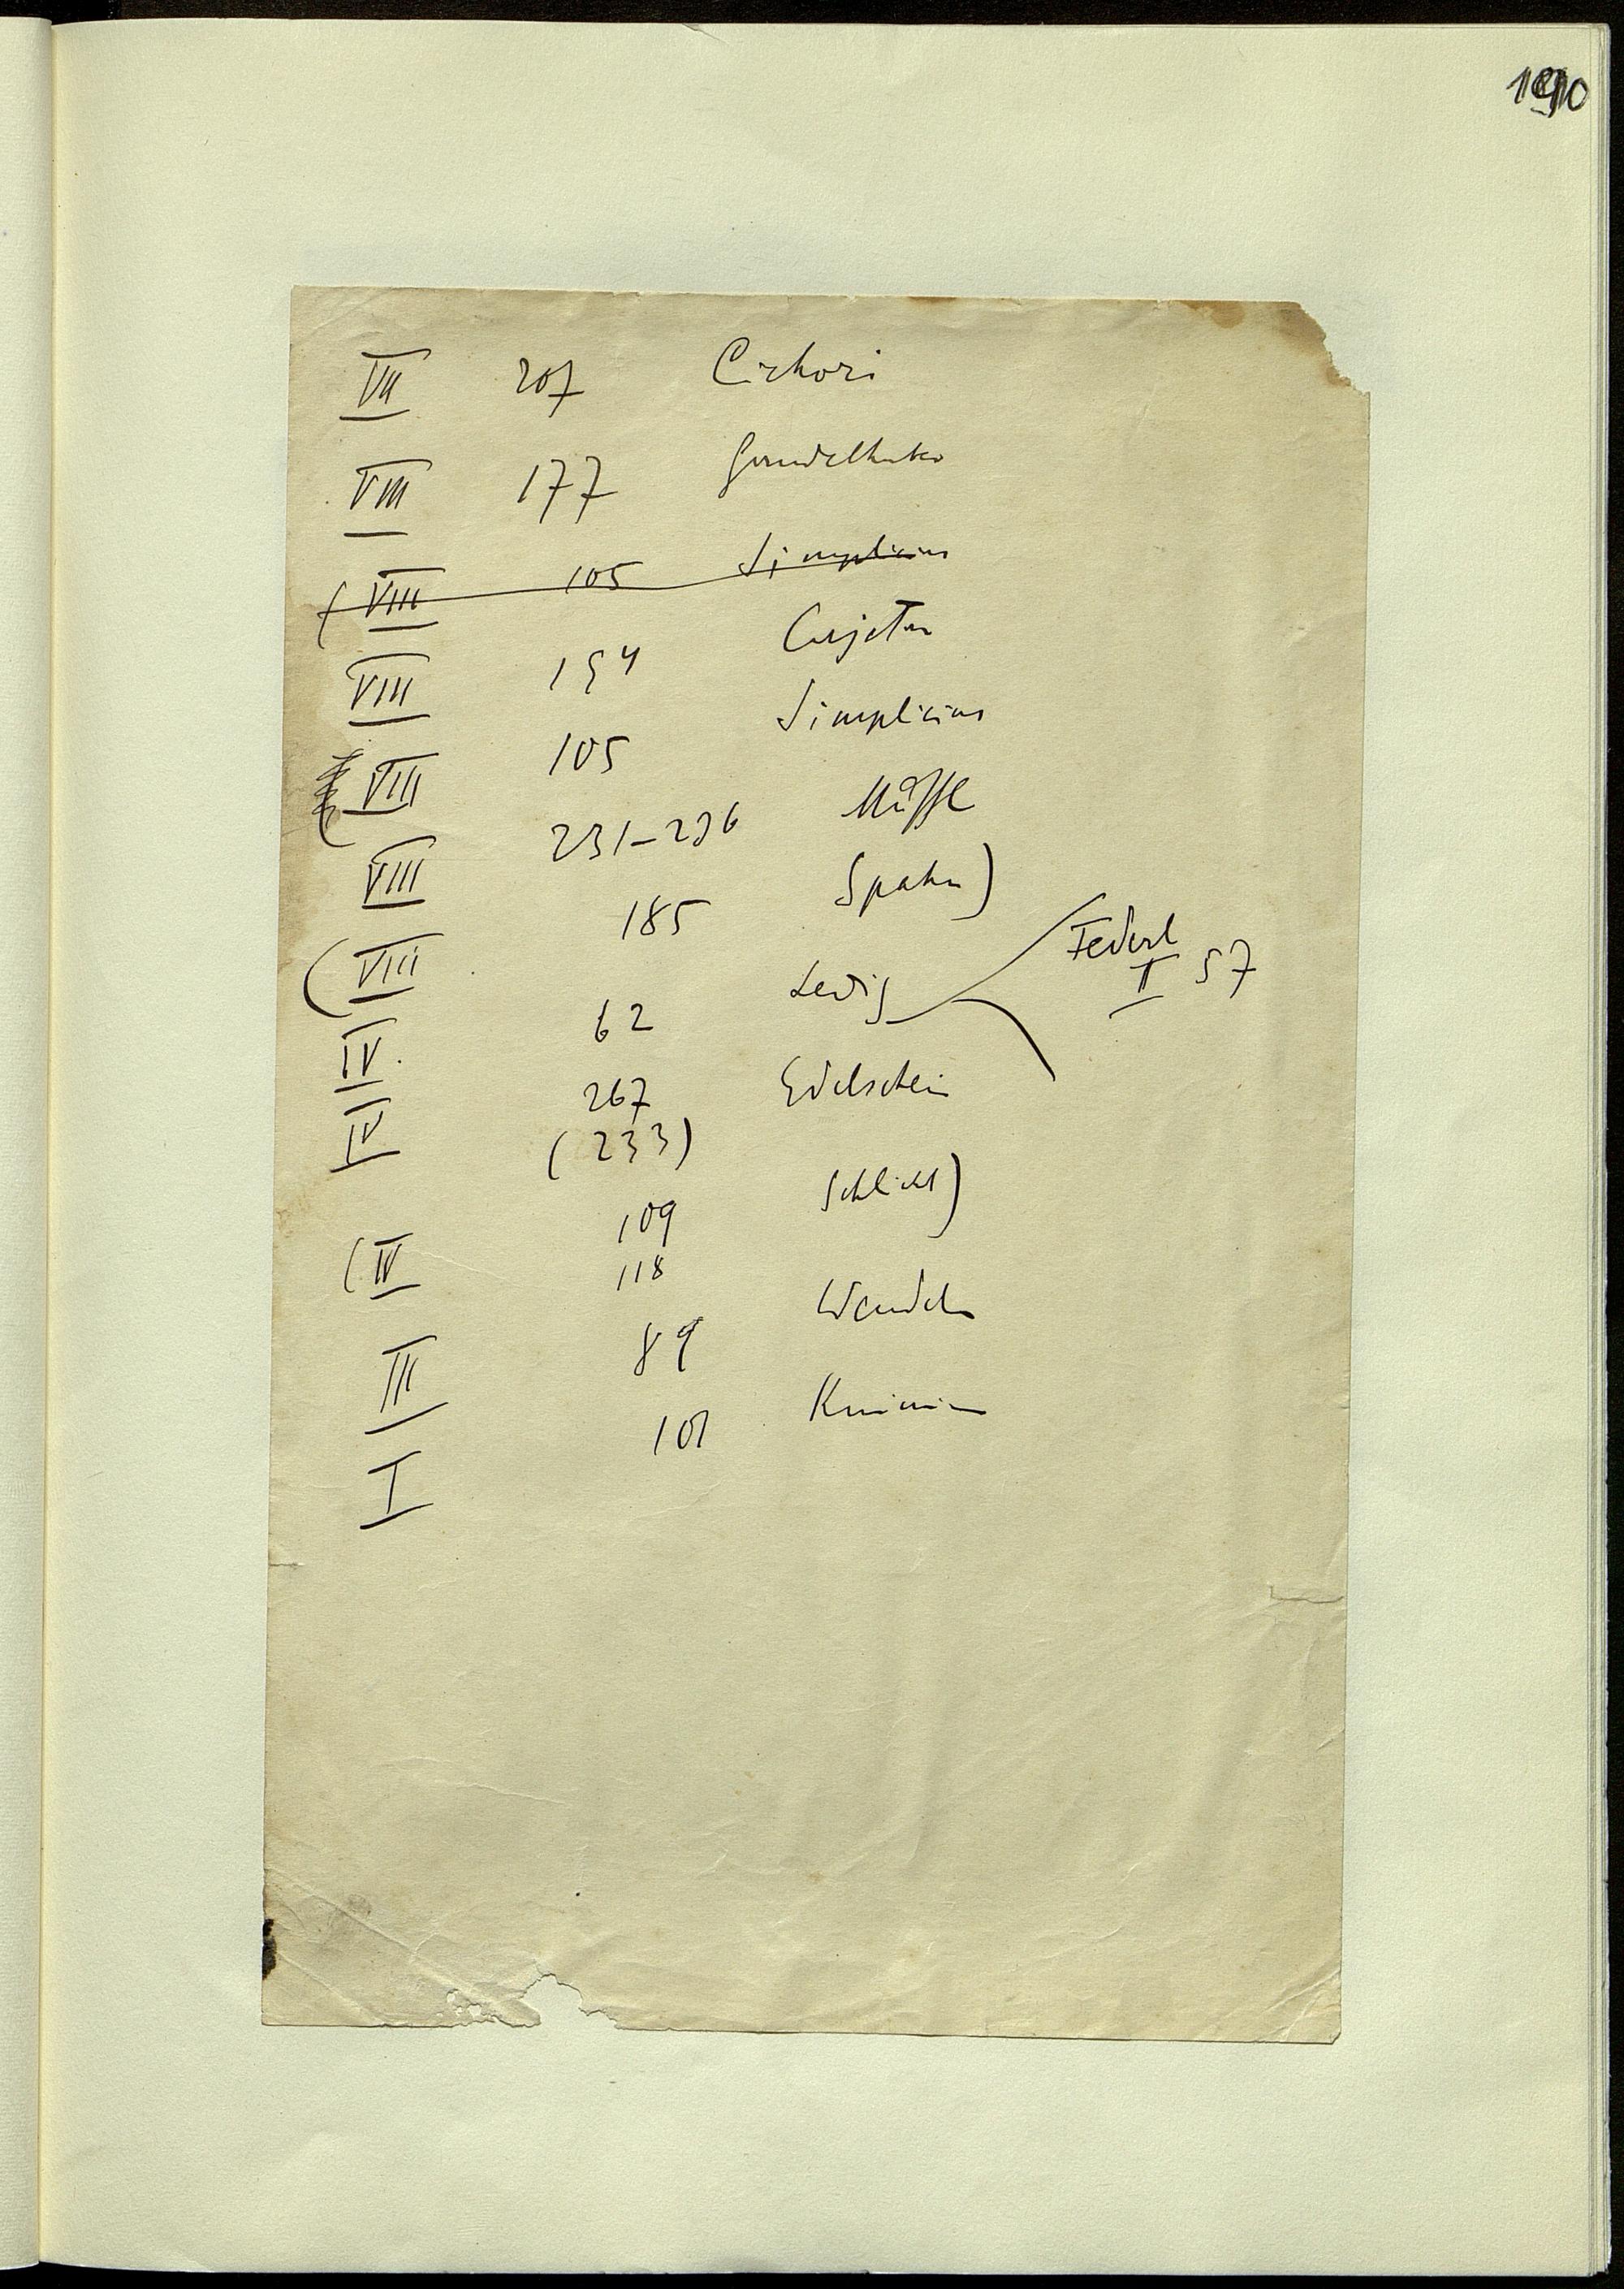 190
VII 207 Cichori
VIII 177
(VIII 105 Simplicius
VIII 154 Cajetan
VIII 105 Simplicius
VIII 231-236 Müffl
(VIII 185 Spahn)
IV 62 Ledig
Federl
II 57
IV 267 Edelschein
(233)
(IV 109 Schlicht)
118
III 89 Wendel
I 101